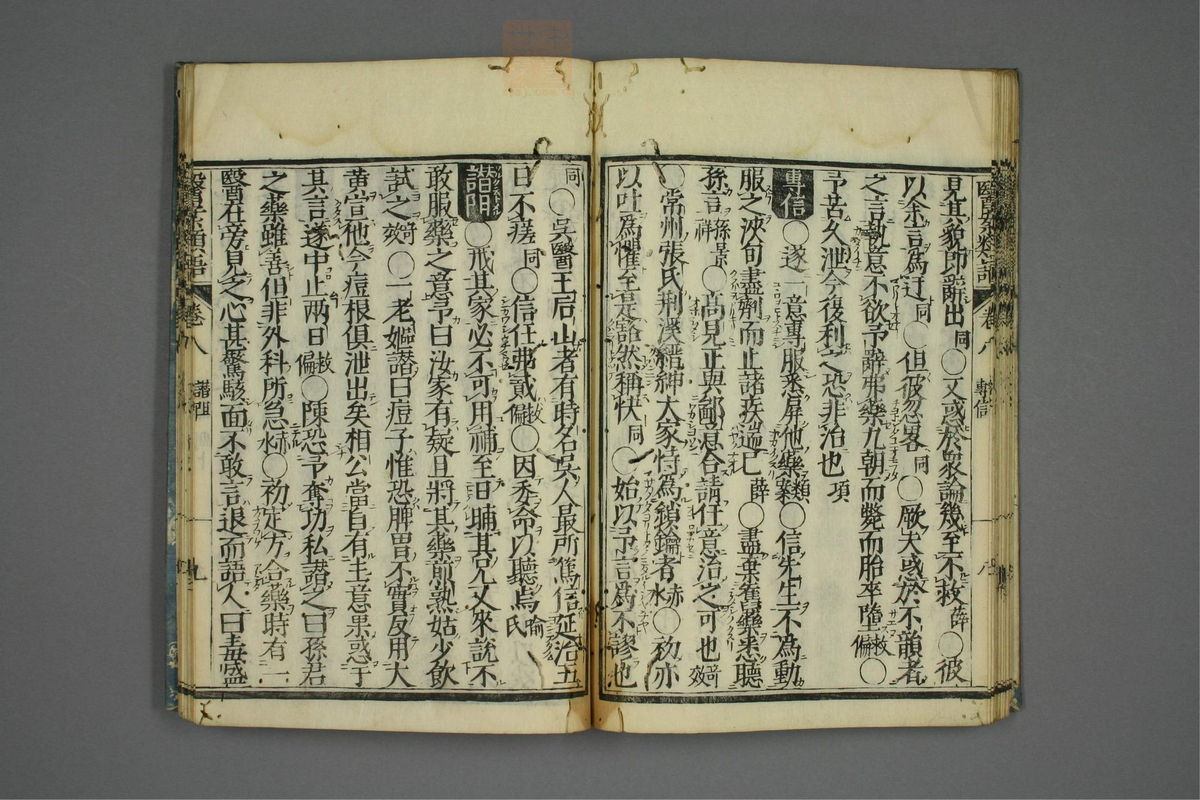 見其貌即辭出同○又惑於衆論幾至不救薛○彼
以余言為迂同○但彼忽畧同○厥夫惑於不韻者
之言執意不欲予辭弗藥九朝而斃而胎卒墮救偏○
予苦久泄今復利之恐非治也項
專信○遂一意專服悉屏他藥類案○信先生不為動
服之浹旬盡劑而止諸疾遄已薛○盡棄舊藥悉聽
孫言孫景祥○高見正與鄙意合請任意治之可也奇效
○常州張氏荆溪縉紳大家恃為鎖鑰者赤水○初亦
以吐為懼至是豁然稱快同○始以予言為不謬也
醫案類語 卷八 專信 八
同○吳醫王居山者有時名吳人最所篤信延治五
日不瘥同○信任弗貳救偏○因委命以聽焉喻氏
譖間○戒其家必不可用補至日晡其兄又來説不
敢服藥之意予曰汝家有疑且將其藥煎熟姑少飲
試之奇效○一老嫗譖曰痘子惟恐脾胃不實反用大
黄宣他今痘根俱泄出矣相公當自有主意果惑于
其言遂中止兩日救偏○陳恐予奪功私譖之曰孫君
之藥雖善但非外科所急赤水○初定方合藥時有一
醫在旁見之心甚驚駭面不敢言退而語人曰毒盛
醫案類語 卷八 譖間 九